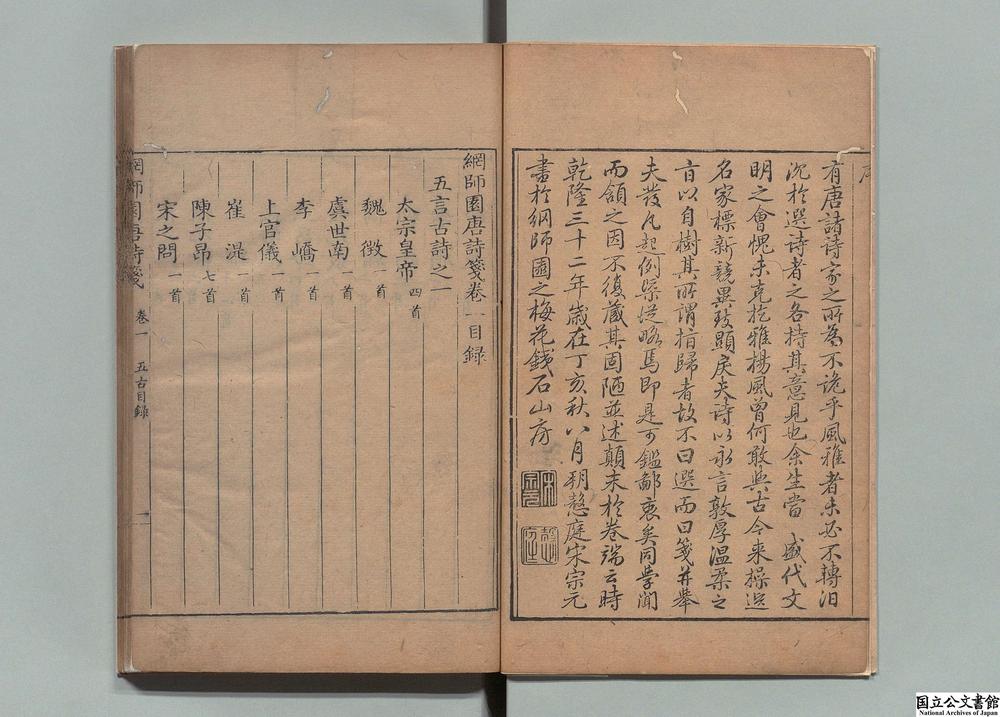 有唐諸詩家之所為不詭乎風雅者未必不轉汩
沉於選詩者之各持其意見也余生當 盛代文
明之會愧未克扢雅揚風曾何敢與古今来操選
名家標新競異致顯戾夫詩以永言敦厚温柔之
旨以自樹其所謂指歸者故不曰選而曰箋并舉
夫發凡起例槩從略焉即是可鑑鄙衷矣同學聞
而頷之因不復蔵其固陋並述顛末於卷端云時
乾隆三十二年歲在丁亥秋八月朔慤庭宋宗元
書於網師園之梅花鐵石山房
網師園唐詩箋卷一目録
五言古詩之一
太宗皇帝 四首
魏徴 一首
虞世南 一首
李嶠 一首
上官儀 一首
崔湜 一首
陳子昂 七首
宋之問 一首
網師園唐詩箋 卷一 五古目錄 一
国立公文書館
National Archives of Japan